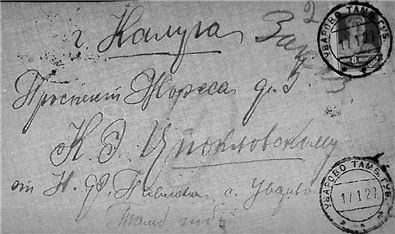 2
г. Калуга
Заказн
Проспект Жореса д. 3
К. Э. Циолковскому
от Н. Ф. с. Уварово
Тамб губ
УВАРОВО ТАМБ. ГУБ.
17.1.27
8
УВАРОВО ТАМБ. ГУБ.
17.1.27